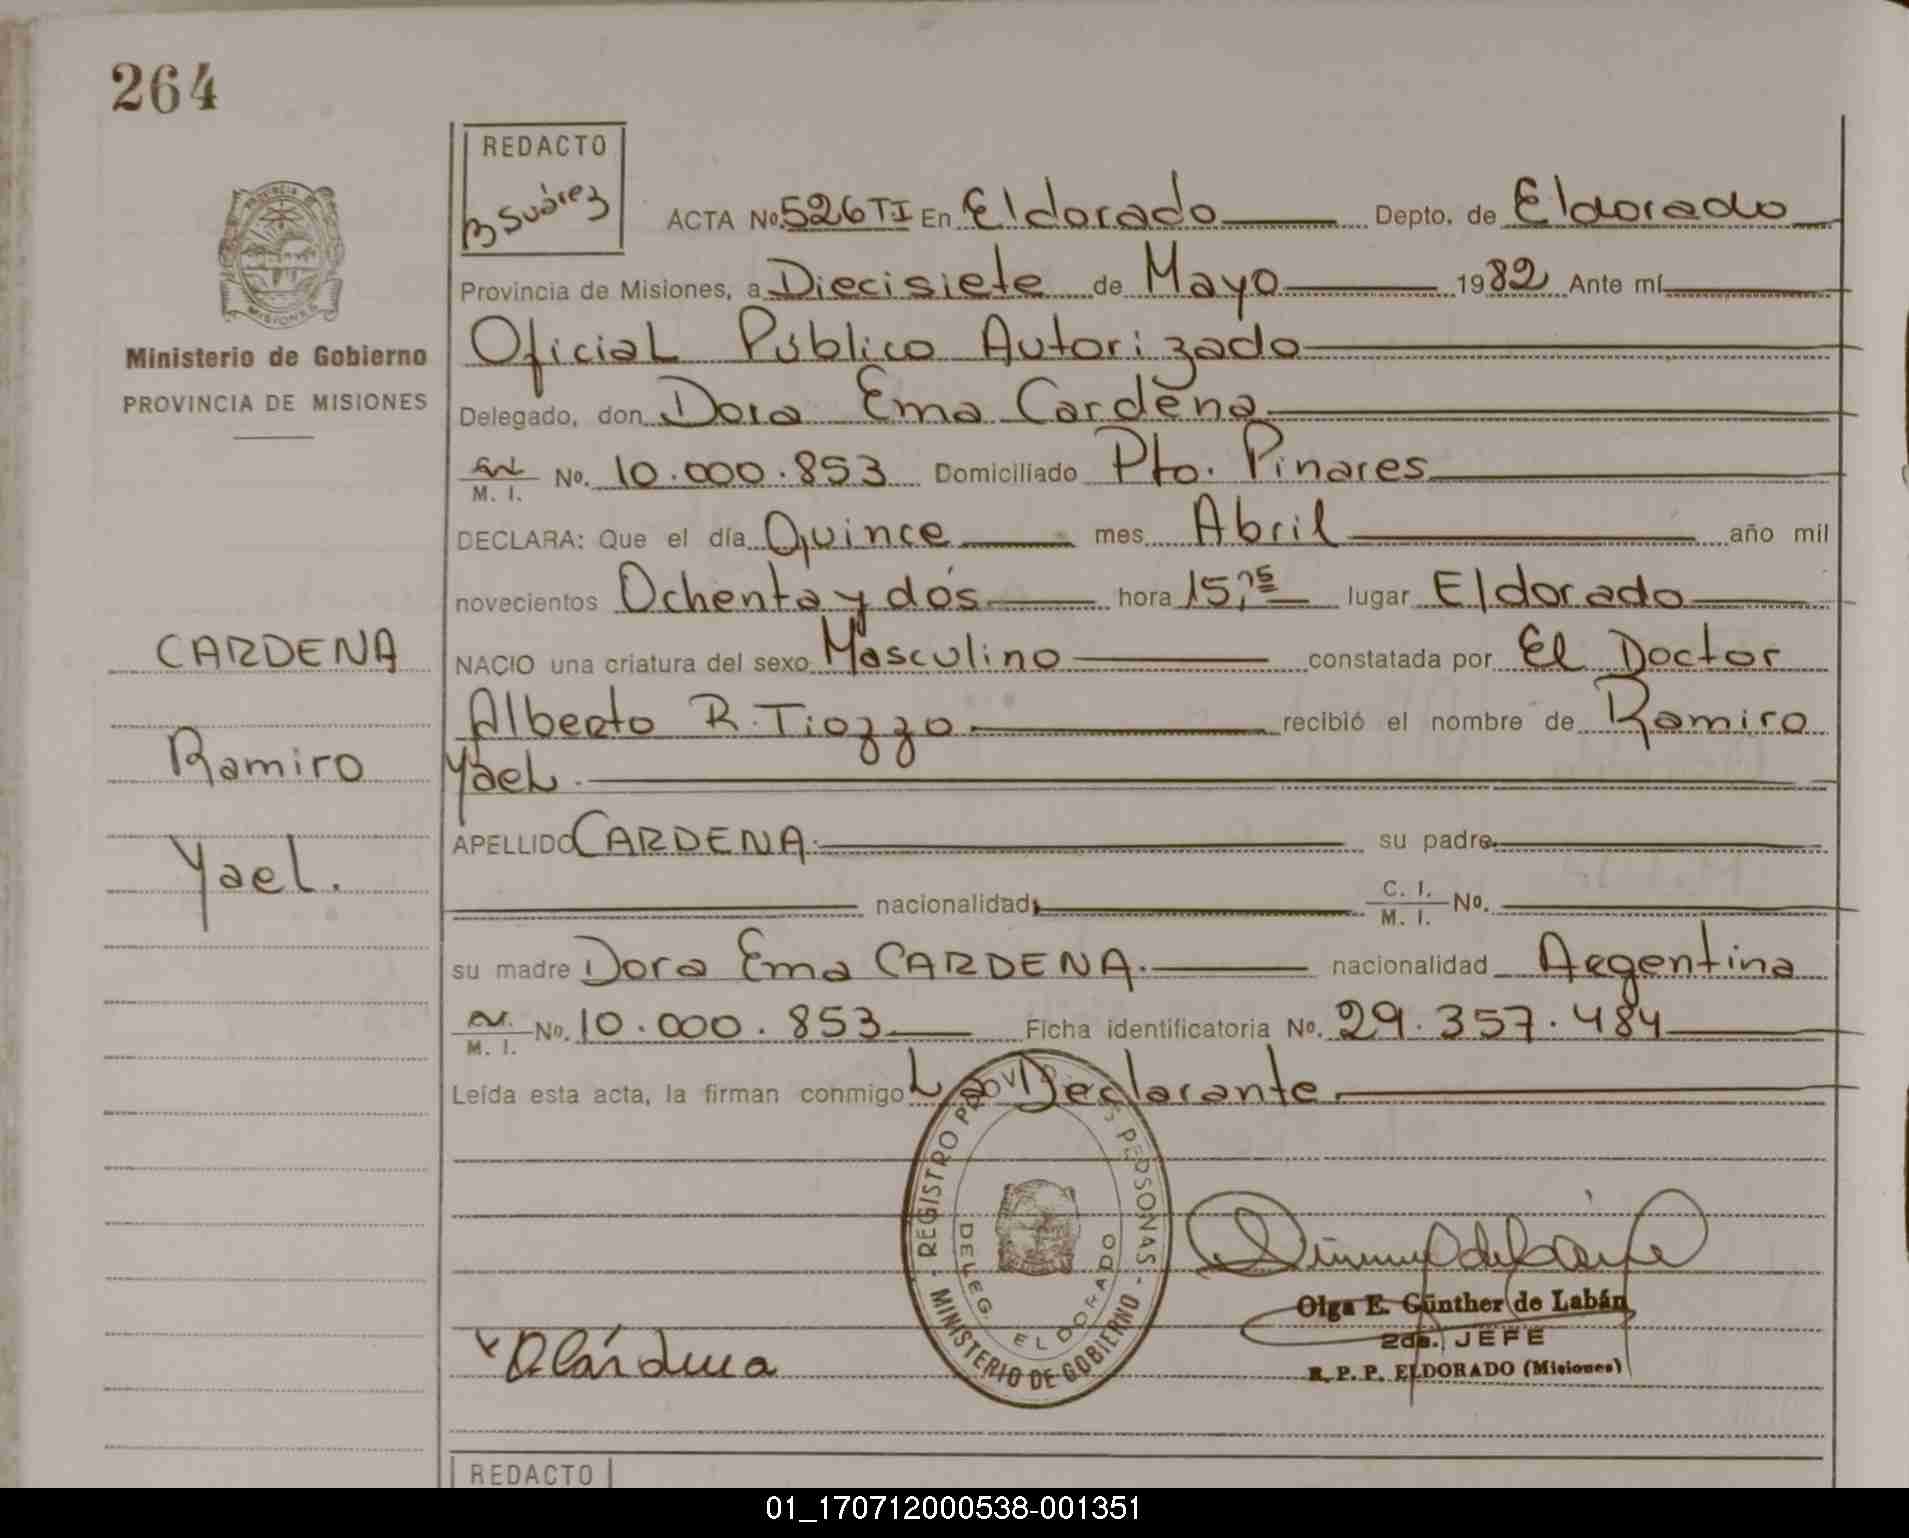 264
REDACTO
B Suárez
ACTA No. 526 TI En Eldorado Depto. de Eldorado
Ministerio de Gobierno
PROVINCIA DE MISIONES
Provincia de Misiones, a Diecisiete de Mayo 1982 Ante mí
Oficial Público Autorizado
Delegado, don Dora Ema Cardena
M. I. No. 10.000.853 Domiciliado Pto. Pinares
DECLARA: Que el día Quince mes Abril año mil
novecientos Ochenta y dos hora 15, lugar Eldorado
CARDENA
Ramiro
Yael.
NACIO una criatura del sexo Masculino constatada por El Doctor
Alberto R. Tiozzo recibió el nombre de Ramiro
Yael.
APELLIDO CARDENA. su padre
nacionalidad C. I. M. I. No.
su madre Dora Ema CARDENA. nacionalidad Argentina
M. I. No. 10.000.853 Ficha identificatoria No. 29.357.484
Leída esta acta, la firman conmigo La Declarante
REGISTRO PERSONAS
MINISTERIO DE GOBIERNO
DELEG. ELDORADO
DCárdena
Olga E. Günther de Labán
2da. JEFE
R. P. P. ELDORADO (Misiones)
REDACTO
01_170712000538-001351